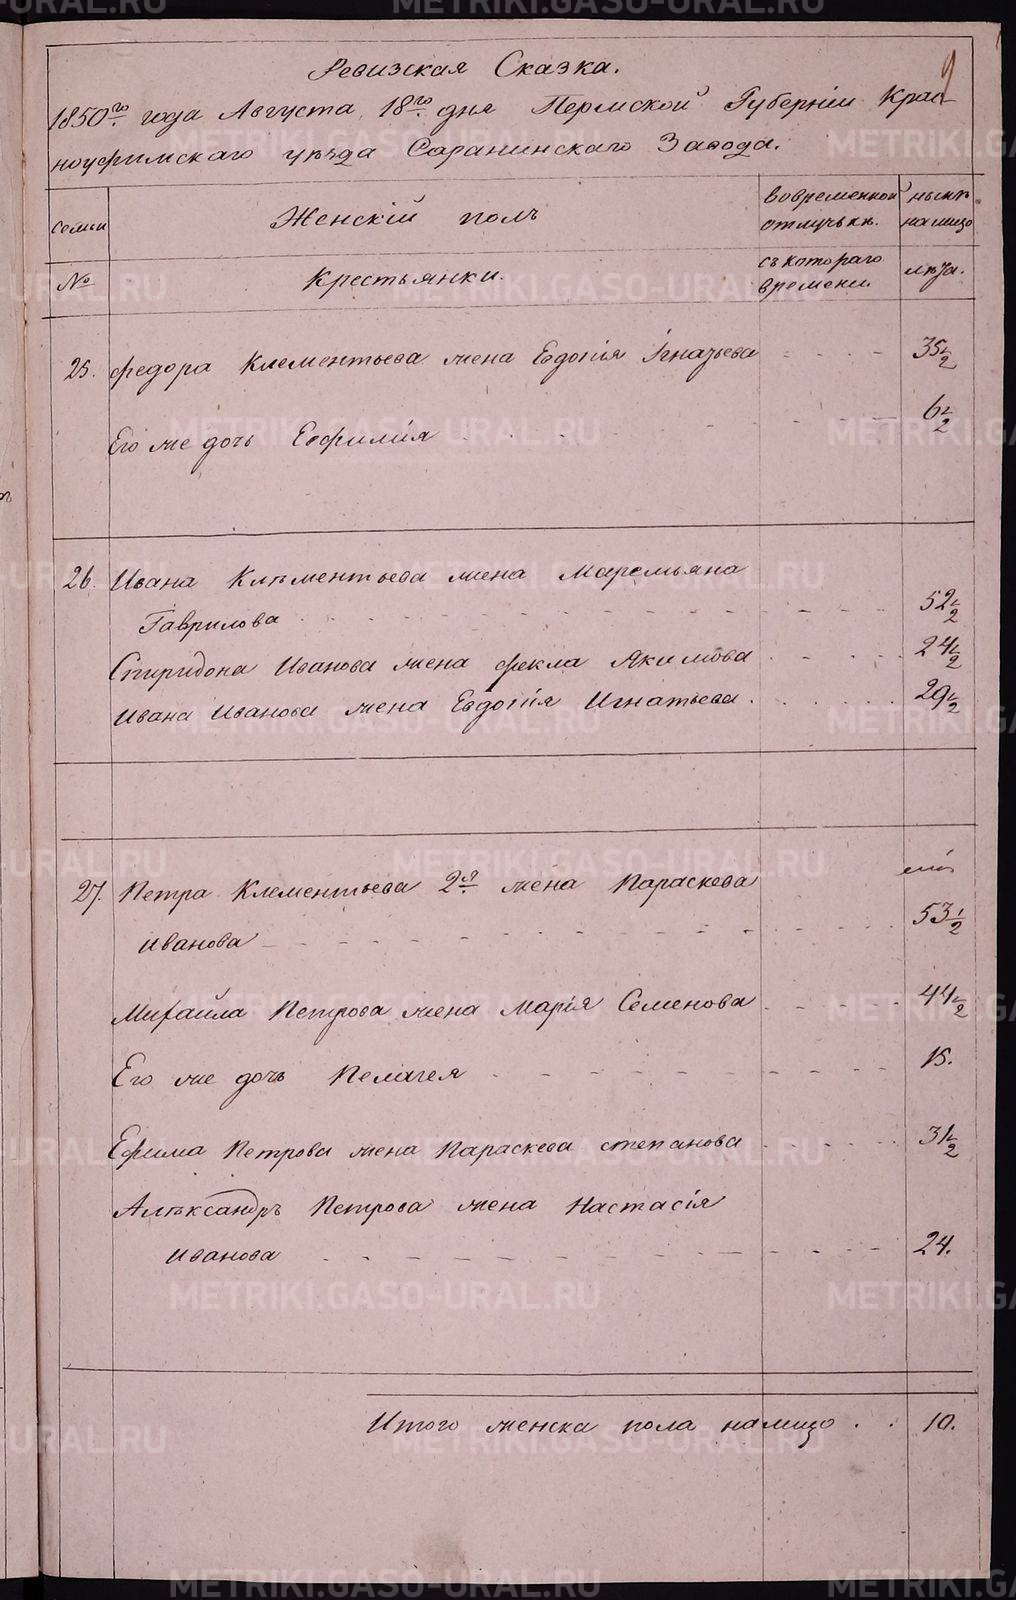 9
Ревизская Сказка.
1850го года Августа 18го дня Пермской Губернiи Крас
ноуфимскаго уѣзда Саранинскаго Завода.
семьи
Женскiй полъ
вовременной
отлучькѣ.
нынѣ
налицо
№
Крестьянки.
съкотораго
времени
лѣта.
25. Федора Клементьева жена Евдокiя Iгнатьева - - - - 35 1/2
Его же дочь Евфимiя - - - - 6 1/2
26. Ивана Клѣментьева жена Маремьяна
Гаврилова - - - - 52 1/2
Спиридона Иванова жена Фекла Якимова - - - - 24 1/2
Ивана Иванова жена Евдокiя Игнатьева - - - - 29 1/2
27. Петра Клементьева 2я жена Параскева
Иванова - - - - 53 1/2
Михайла Петрова жена Марiя Семенова - - - - 44 1/2
Его же дочь Пелагея - - - - 15.
Ефима Петрова жена Параскева Степанова - - - - 31 1/2
Алѣксандръ Петрова жена Настасiя
Иванова - - - - 24.
Итого женска пола налицо . . 10.
METRIKI.GASO-URAL.RU